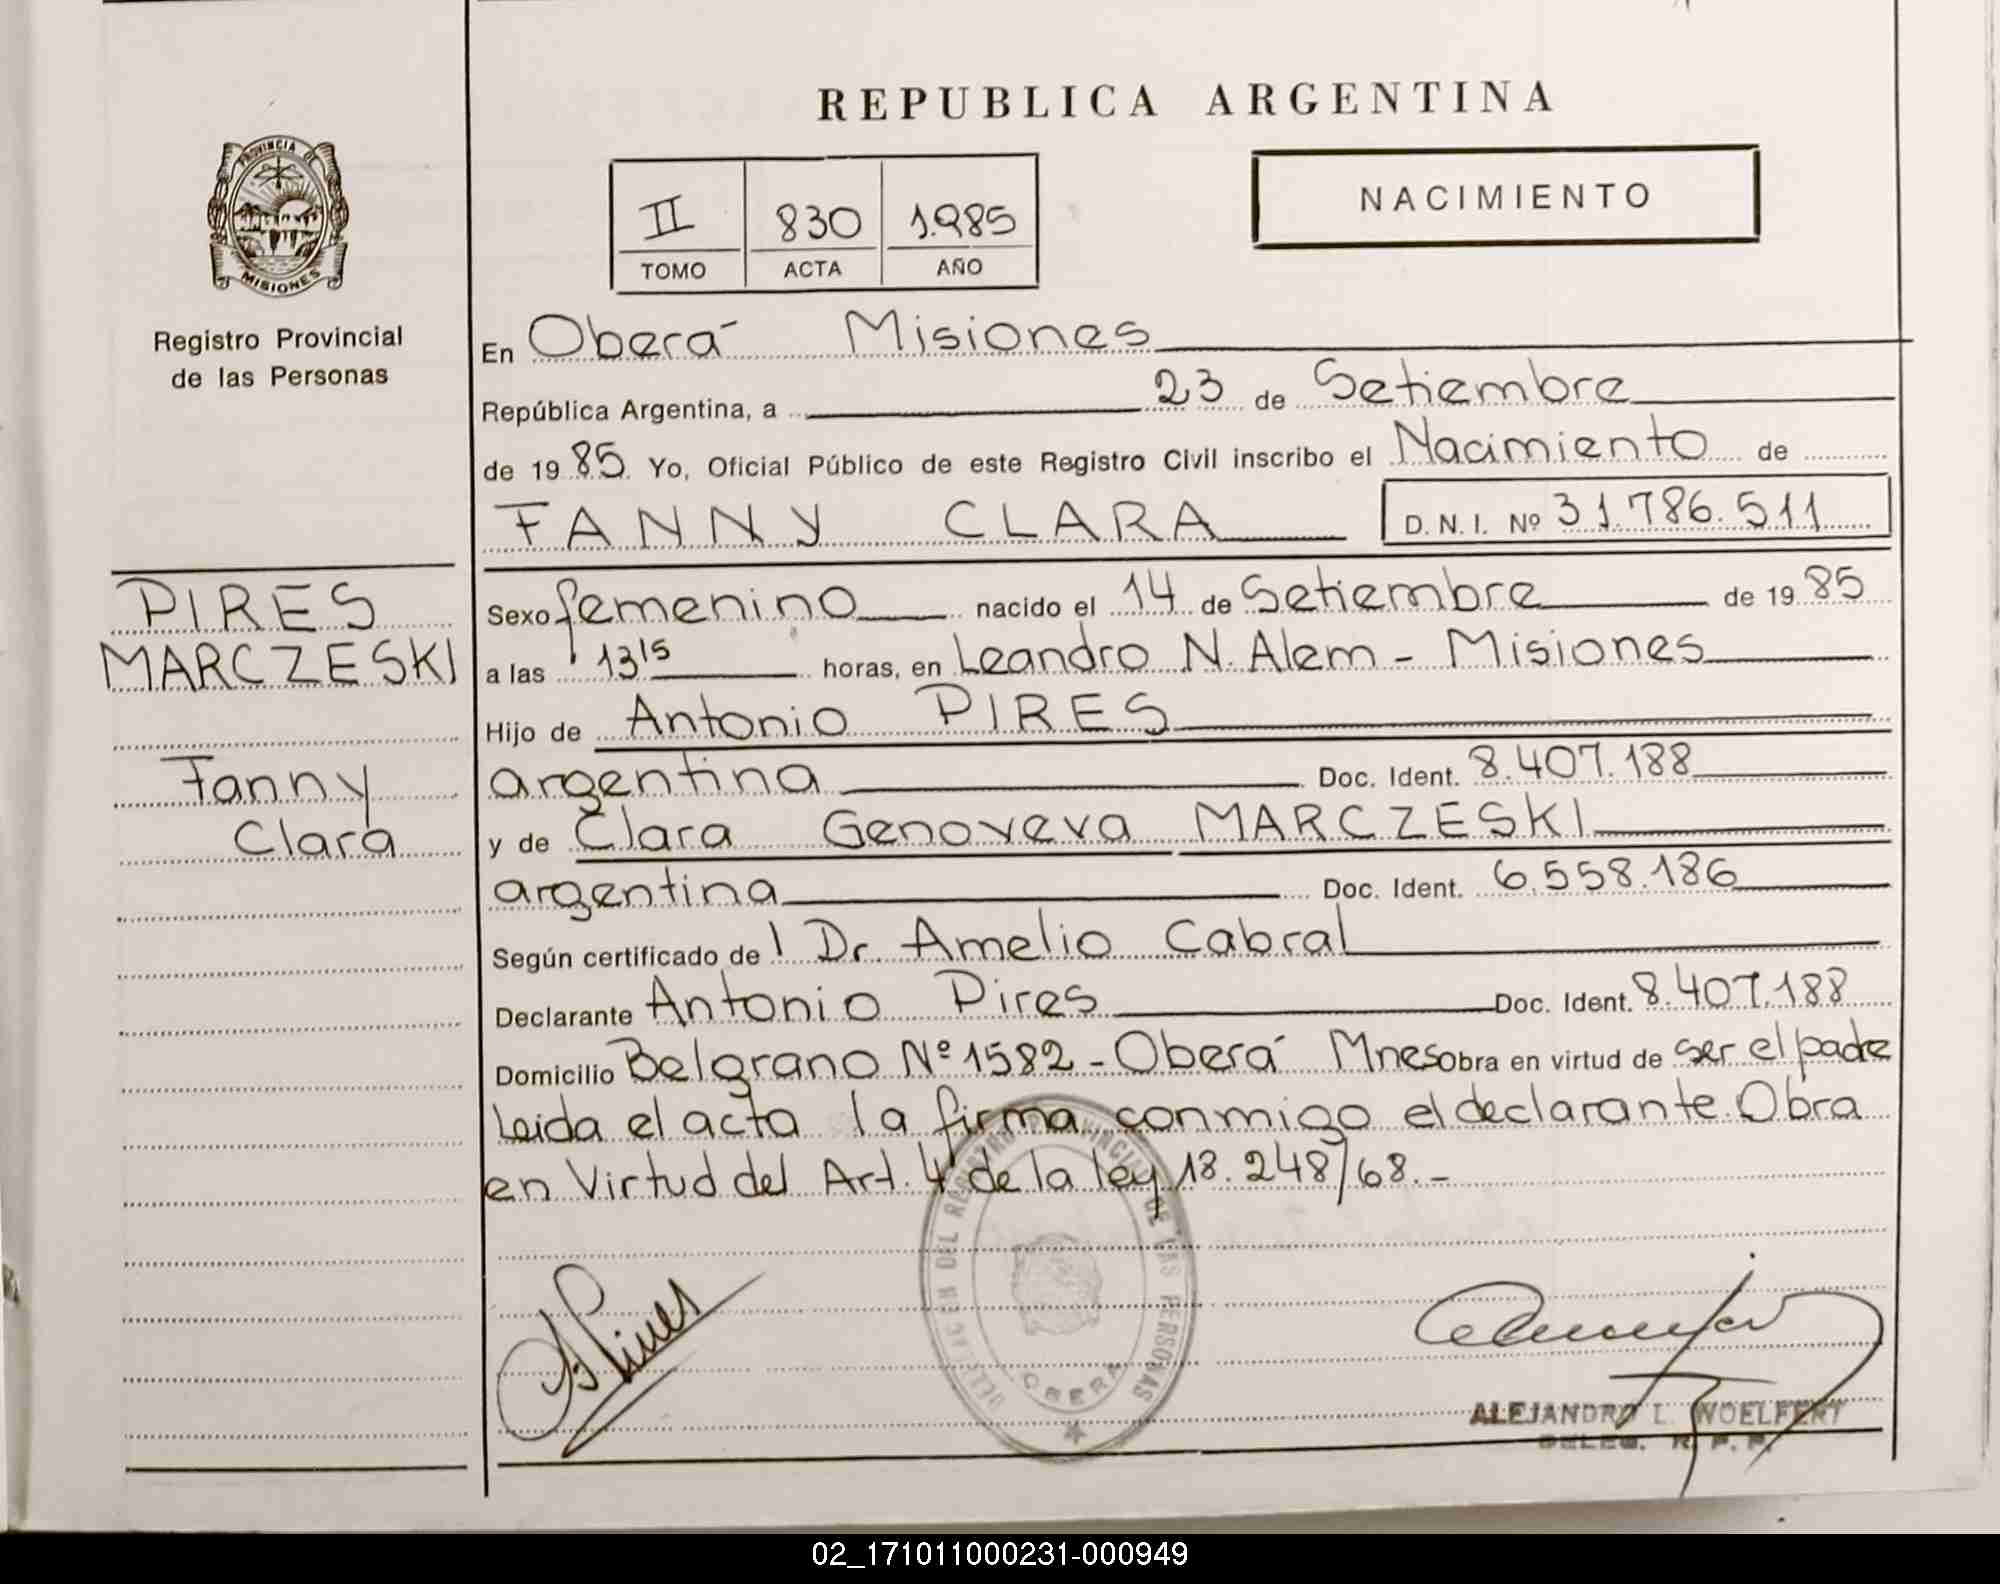 REPUBLICA ARGENTINA
PROVINCIA DE
MISIONES
Registro Provincial
de las Personas
II 830 1.985
TOMO ACTA AÑO
NACIMIENTO
En Oberá Misiones
República Argentina, a 23 de Setiembre
de 19 85. Yo, Oficial Público de este Registro Civil inscribo el Nacimiento de
FANNY CLARA D.N.I. Nº 31.786.511
PIRES
MARCZESKI
Fanny
Clara
Sexo femenino nacido el 14 de Setiembre de 19 85
a las 13 15 horas, en Leandro N. Alem - Misiones
Hijo de Antonio PIRES
argentina Doc. Ident. 8.407.188
y de Clara Genoveva MARCZESKI
argentina Doc. Ident. 6.558.186
Según certificado de l Dr. Amelio Cabral
Declarante Antonio Pires Doc. Ident. 8.407.188
Domicilio Belgrano Nº 1582 - Oberá Mnes obra en virtud de ser el padre
Leida el acta la firma conmigo el declarante. Obra
en Virtud del Art. 4 de la ley 18.248/68.-
DEL REGISTRO PROVINCIAL DE LAS PERSONAS
OBERA
A. Pires
ALEJANDRO L. WOELFERT
DELEG. R. P. P.
02_171011000231-000949